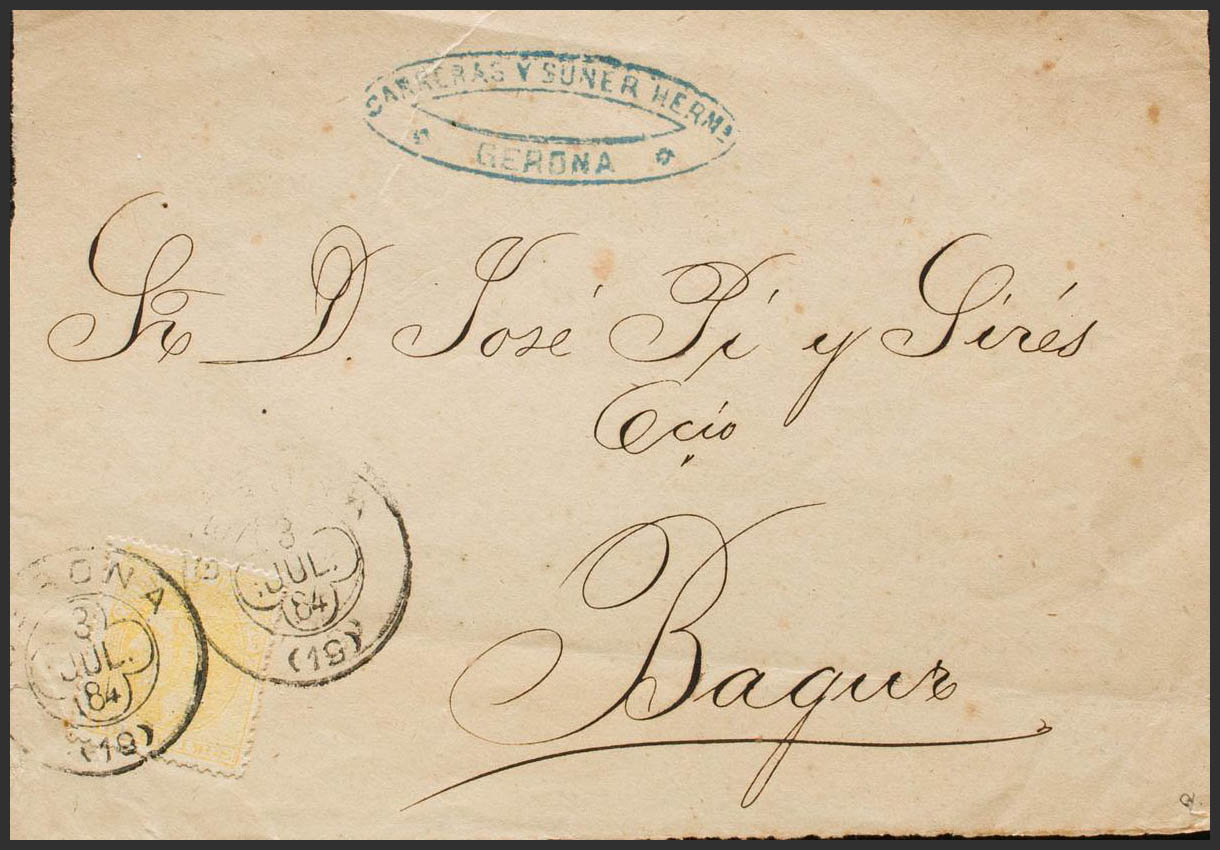 CARRERAS Y SUÑER HERMˢ
GERONA
Sr. D. José Pi y Sirés
Ccio
Bagur
3
JUL.
84
(19)
GERONA
3
JUL.
84
(19)